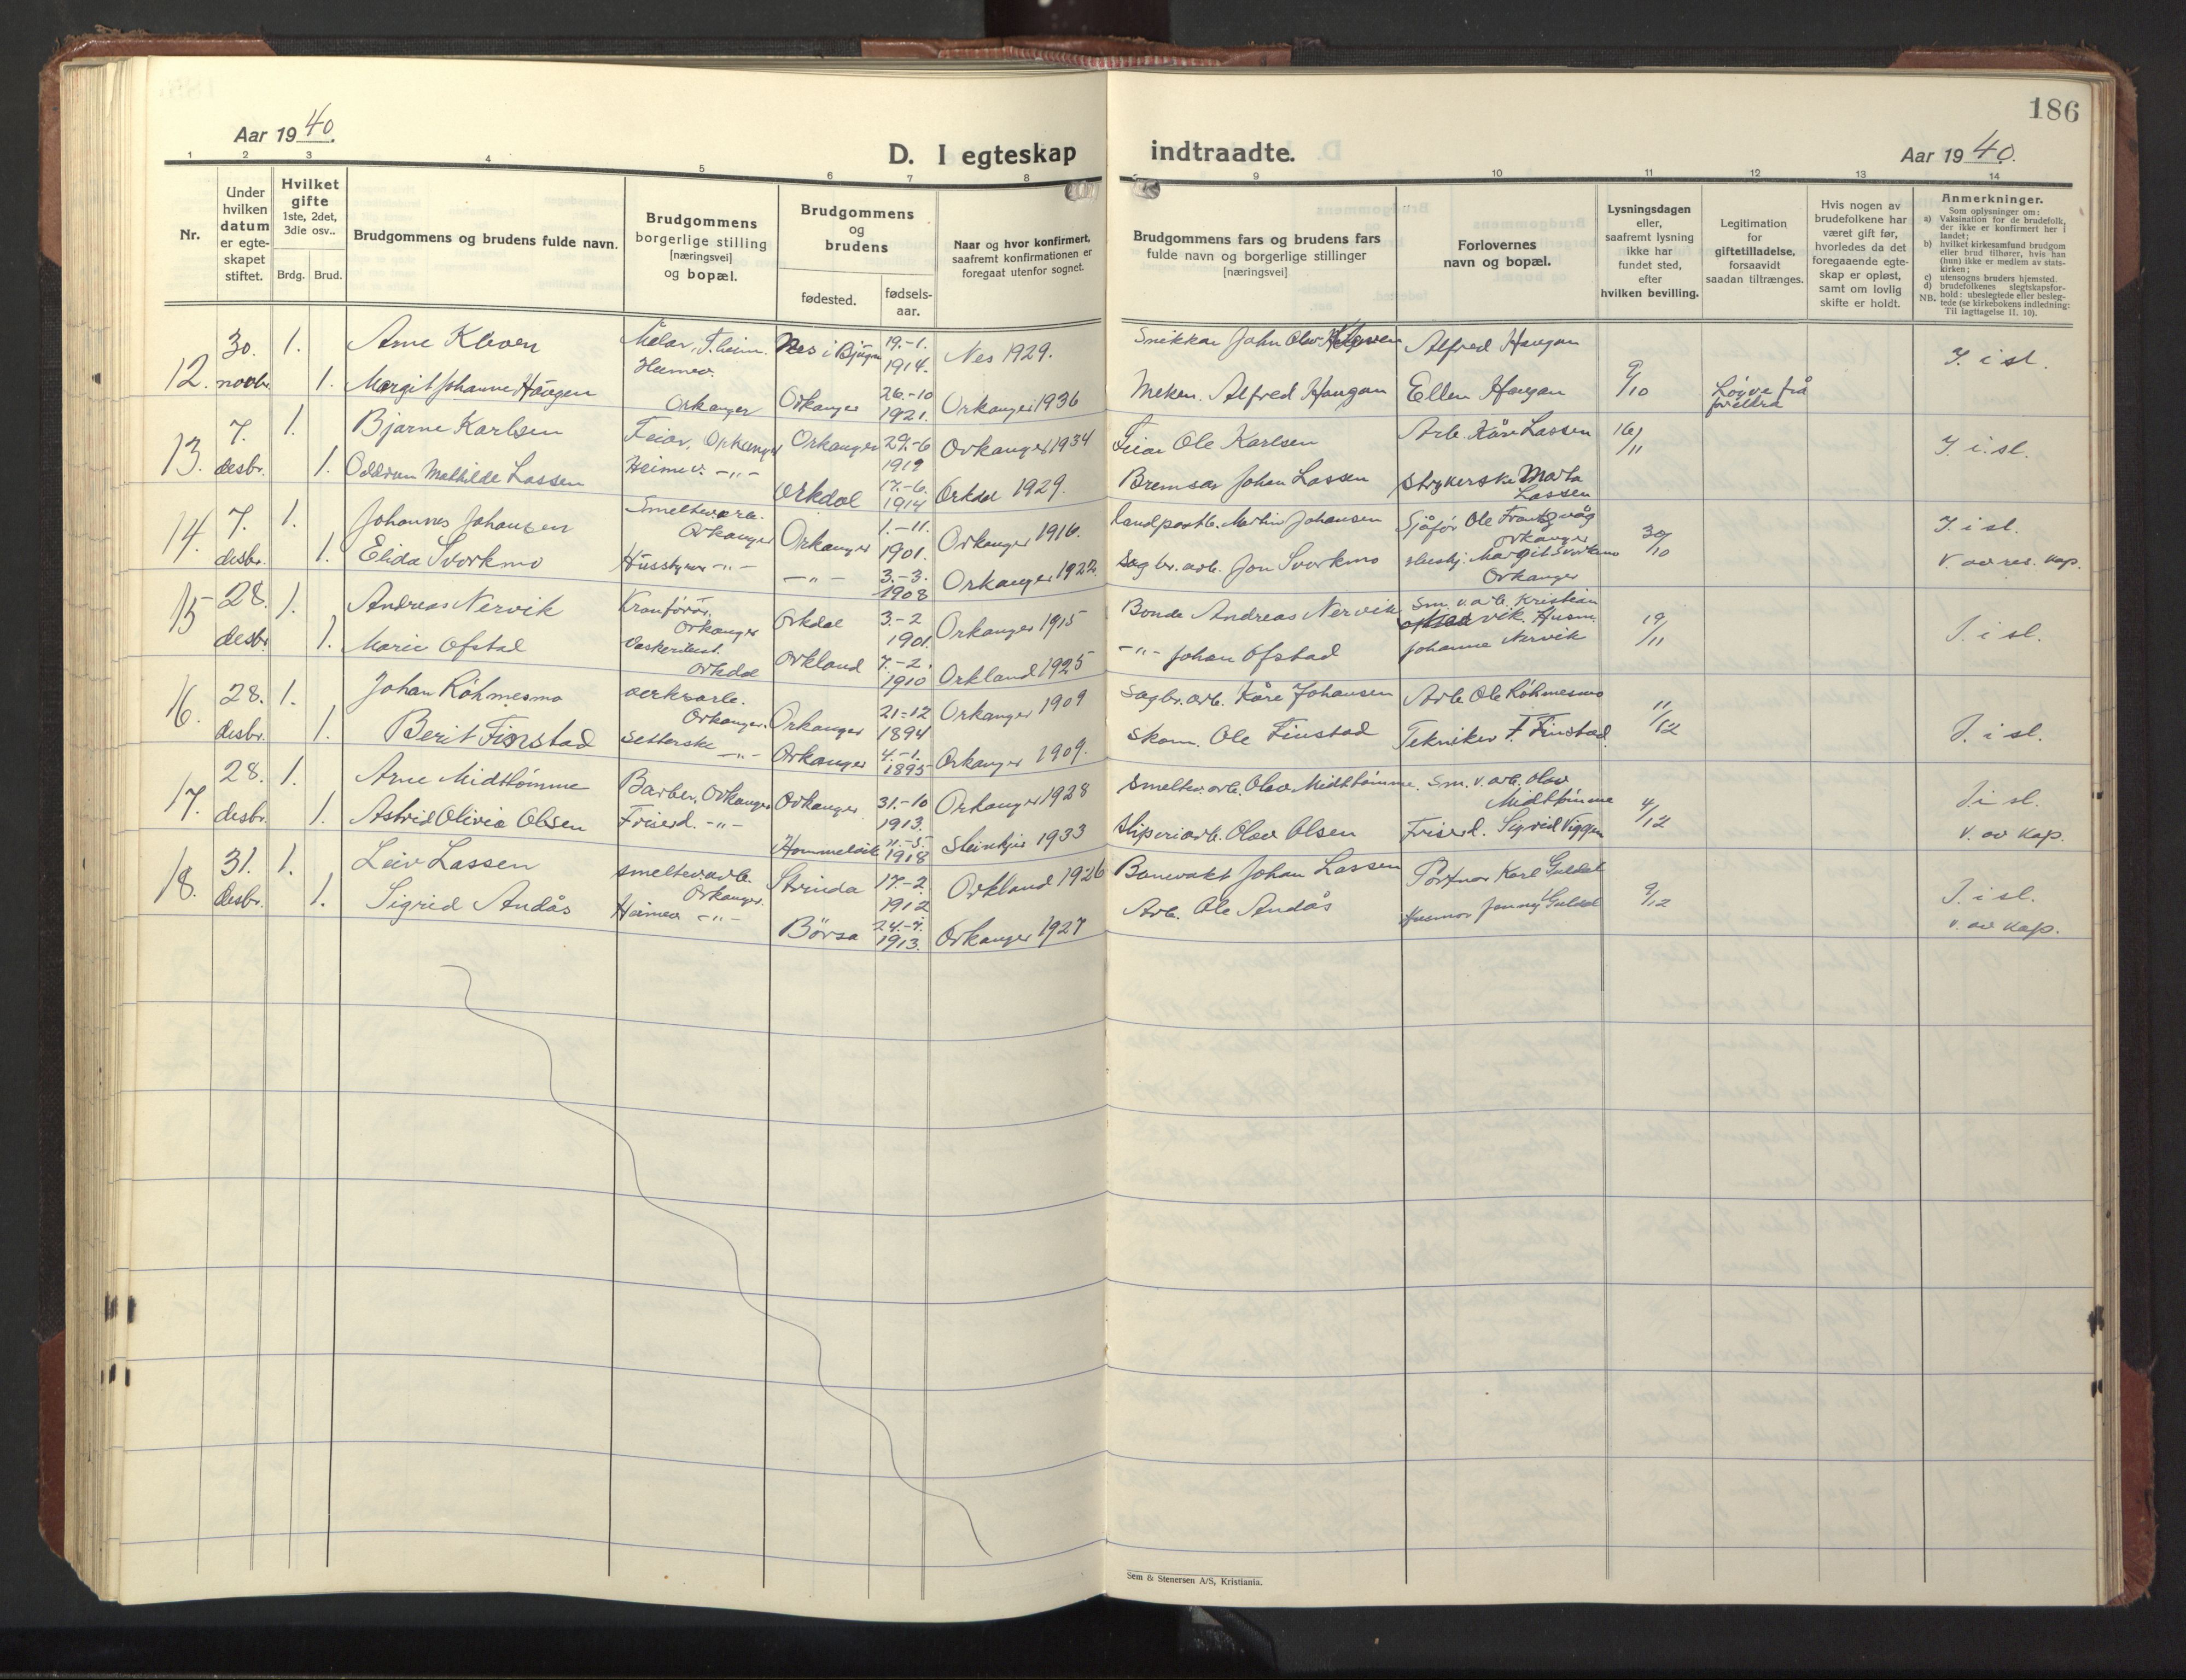 186
Aar 1940.
D. I egteskap indtraadte.
Aar 1940.
1 2 3 4 5 6 7 8 9 10 11 12 13 14
Nr.
Under hvilken datum er egteskapet stiftet.
Hvilket gifte 1ste, 2det, 3die osv..
Brdg. Brud.
Brudgommens og brudens fulde navn.
Brudgommens borgerlige stilling [næringsvei] og bopæl.
Brudgommens og brudens
fødested.
fødselsaar.
Naar og hvor konfirmert, saafremt konfirmationen er foregaat utenfor sognet.
Brudgommens fars og brudens fars fulde navn og borgerlige stillinger [næringsvei]
Forlovernes navn og bopæl.
Lysningsdagen eller, saafremt lysning ikke har fundet sted, efter hvilken bevilling.
Legitimation for giftetilladelse, forsaavidt saadan tiltrænges.
Hvis nogen av brudefolkene har været gift før, hvorledes da det foregaaende egteskap er opløst, samt om lovlig skifte er holdt.
Anmerkninger.
Som oplysninger om:
a) Vaksination for de brudefolk, der ikke er konfirmert her i landet;
b) hvilket kirkesamfund brudgom eller brud tilhører, hvis han (hun) ikke er medlem av statskirken;
c) utensogns bruders hjemsted.
d) brudefolkenes slegtskapsforhold: ubeslegtede eller beslegtede (se kirkebokens indledning: Til Iagttagelse II. 10).
NB.
12. 30. novbr. 1. Arne Kleven Målar, T.heim. Nes i Bjugn 19.-1. 1914. Nes 1929. Snikkar John Olav Alfred Haugan 9/10 J. i sl.
1. Margit Johanne Haugen Heimev. Orkanger Orkanger 26.-10 1921. Orkanger 1936 Meken. Alfred Haugan Ellen Haugan Löyve frå foreldra
13. 7. desbr. 1. Bjarne Karlsen Feiar, Orkanger Orkanger 29.-6 1919 Orkanger 1934 Feiar Ole Karlsen Arb. Kåre Lassen 16/11 J. i. sl.
1. Oddrun Mathilde Lassen Heimev. -"- Orkdal 17.-6. 1914 Orkdal 1929. Bremsar Johan Lassen Strykerske Marta Lassen
14. 7. desbr. 1. Johannes Johansen Smeltev.arb. Orkanger Orkanger 1.-11. 1901. Orkanger 1916. Landpostb. Martin Johansen Sjåfør Ole Orkanger 30/10 J. i sl.
1. Elida Svorkmo Husstyrer -"- -"- 3.-3. 1908 Orkanger 1922. Sagbr.arb. Jon Svorkmo Margit Svorkmo Orkanger V. av res. kap.
15 28. desbr. 1. Andreas Nervik Kranförar. Orkanger Orkdal 3.-2 1901. Orkanger 1915 Bonde Andreas Nervik Sm. v. arb. Kristian vik. Husm. Johanna Nervik 19/11 J. i sl.
1. Marie Ofstad Orkdal Orkland 7.-2. 1910 Orkland 1925 -"- Johan Ofstad
16. 28. desbr. 1. Johan Röhmesmo verksarb. Orkanger. Orkanger 21-12 1894 Orkanger 1909 Sagbr.arb. Kåre Johansen Arb. Ole Röhmesmo 11/12 J. i sl.
1. Berit Finstad Setterske -"- Orkanger 4.-1. 1895 Orkanger 1909. Skom. Ole Finstad Tekniker F. Finstad.
17. 28. desbr. 1. Arne Midttömme Barber, Orkanger Orkanger 31.-10 1913. Orkanger 1928 Smeltev.arb. Olav Midttömme. Sm. v. arb. Olav Midttömme 4/12 J. i sl.
1. Astrid Olivia Olsen Friserd. -"- Hommelvik 11.-5. 1918 Steinkjer 1933 Sliperiarb. Olav Olsen Friserd. Sigrid Viggen V. av kap.
18. 31. desbr. 1. Leiv Lassen smeltev.arb. Orkanger. Strinda 17.-2. 1912 Orkland 1926 Banevakt Johan Lassen Portnar Karl Guldal 9/12 J. i sl.
1. Sigrid Andås Heimev -"- Börsa 24.-7. 1913. Orkanger 1927 Arb. Ole Andås Husmor Jenny Guldal V. av kap.
Sem & Stenersen A/S, Kristiania.